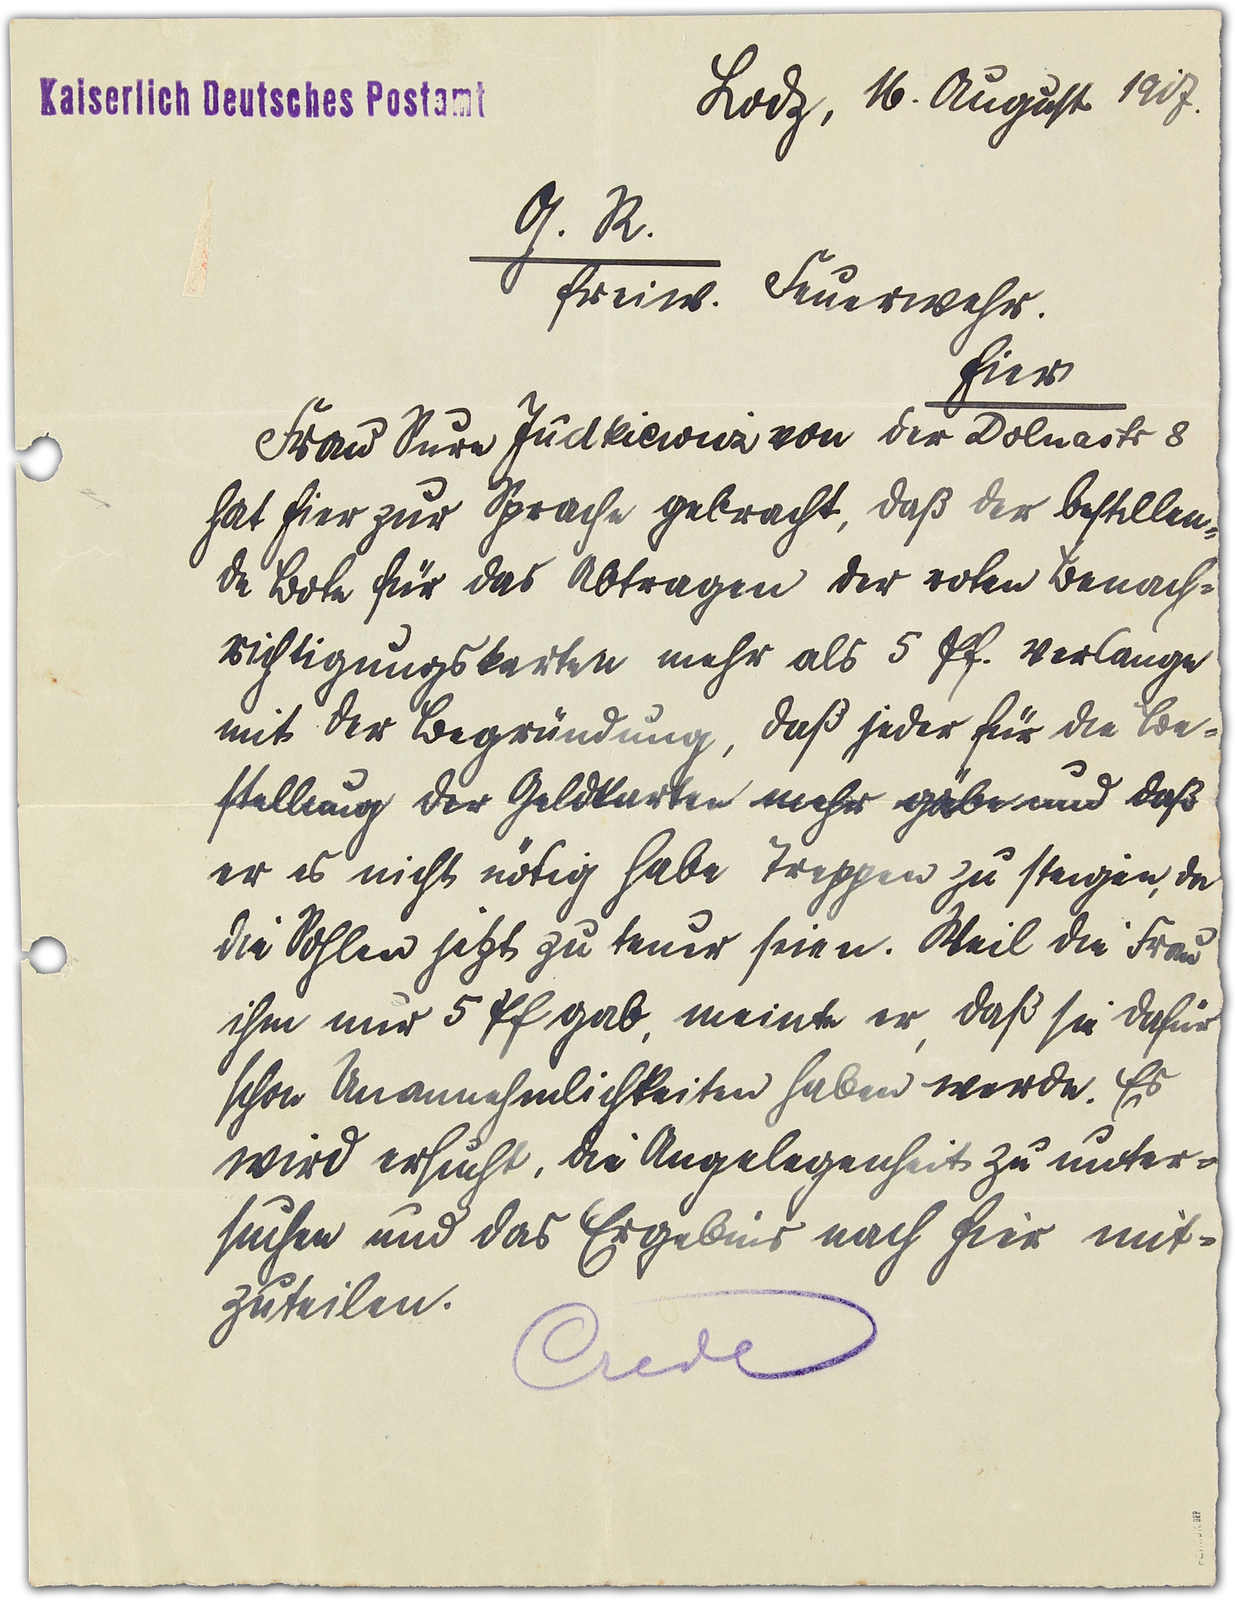 Kaiserlich Deutsches Postamt
Lodz, 16. August 1917.
G. R.
freiw. Feuerwehr.
hier
Frau Sura Judkiewicz von der Dolnastr 8
hat hier zur Sprache gebracht, daß der bestellen=
de Bote für das Abtragen der roten Benach=
richtigungskarten mehr als 5 Pf. verlange
mit der Begründung, daß jeder für die Be=
stellung der Geldkarten mehr gäbe und daß
er es nicht nötig habe Treppen zu steigen, da
die Sohlen jetzt zu teuer seien. Weil die Frau
ihm nur 5 Pf gab, meinte er, daß sie dafür
schon Unannehmlichkeiten haben werde. Es
wird ersucht, die Angelegenheit zu unter=
suchen und das Ergebnis nach hier mit=
zuteilen.
Crede